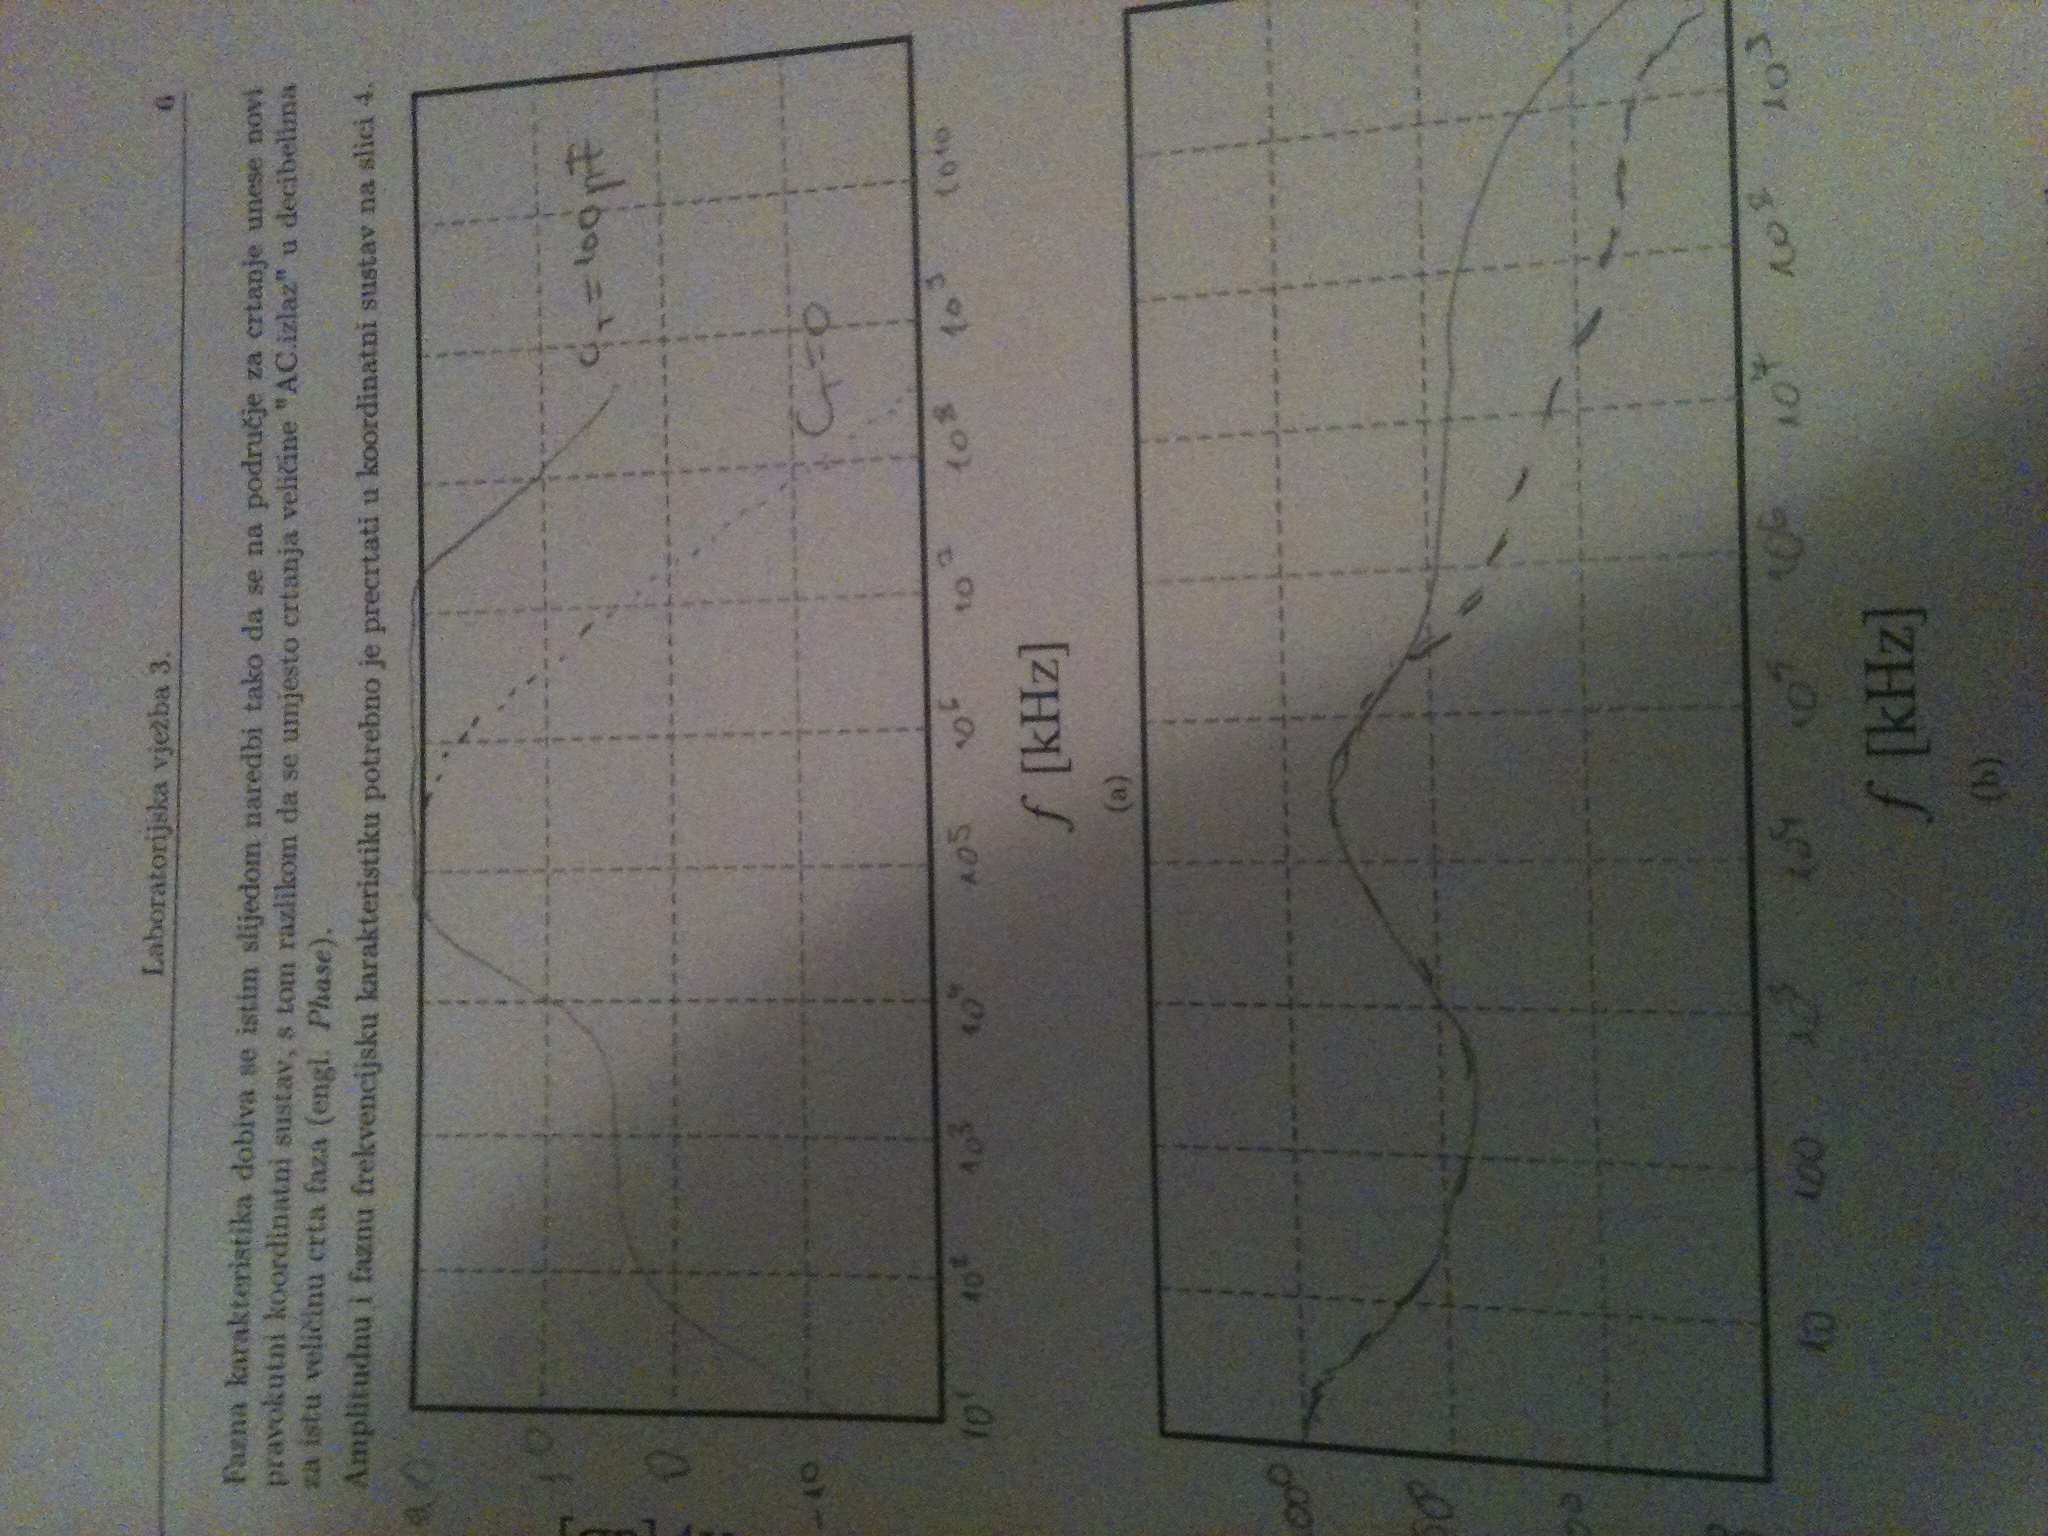 Laboratorijska vježba 3. 6
Fazna karakteristika dobiva se istim slijedom naredbi tako da se na područje za crtanje unese novi
pravokutni koordinatni sustav, s tom razlikom da se umjesto crtanja veličine "AC.izlaz" u decibelima
za istu veličinu crta faza (engl. Phase).
Amplitudnu i faznu frekvencijsku karakteristiku potrebno je precrtati u koordinatni sustav na slici 4.
0
-10
C_T = 100 pF
C_T = 0
10¹ 10² 10³ 10⁴ 10⁵ 10⁶ 10⁷ 10⁸ 10⁹ 10¹⁰
f [kHz]
(a)
10 100 10³ 10⁴ 10⁵ 10⁶ 10⁷ 10⁸ 10⁹
f [kHz]
(b)